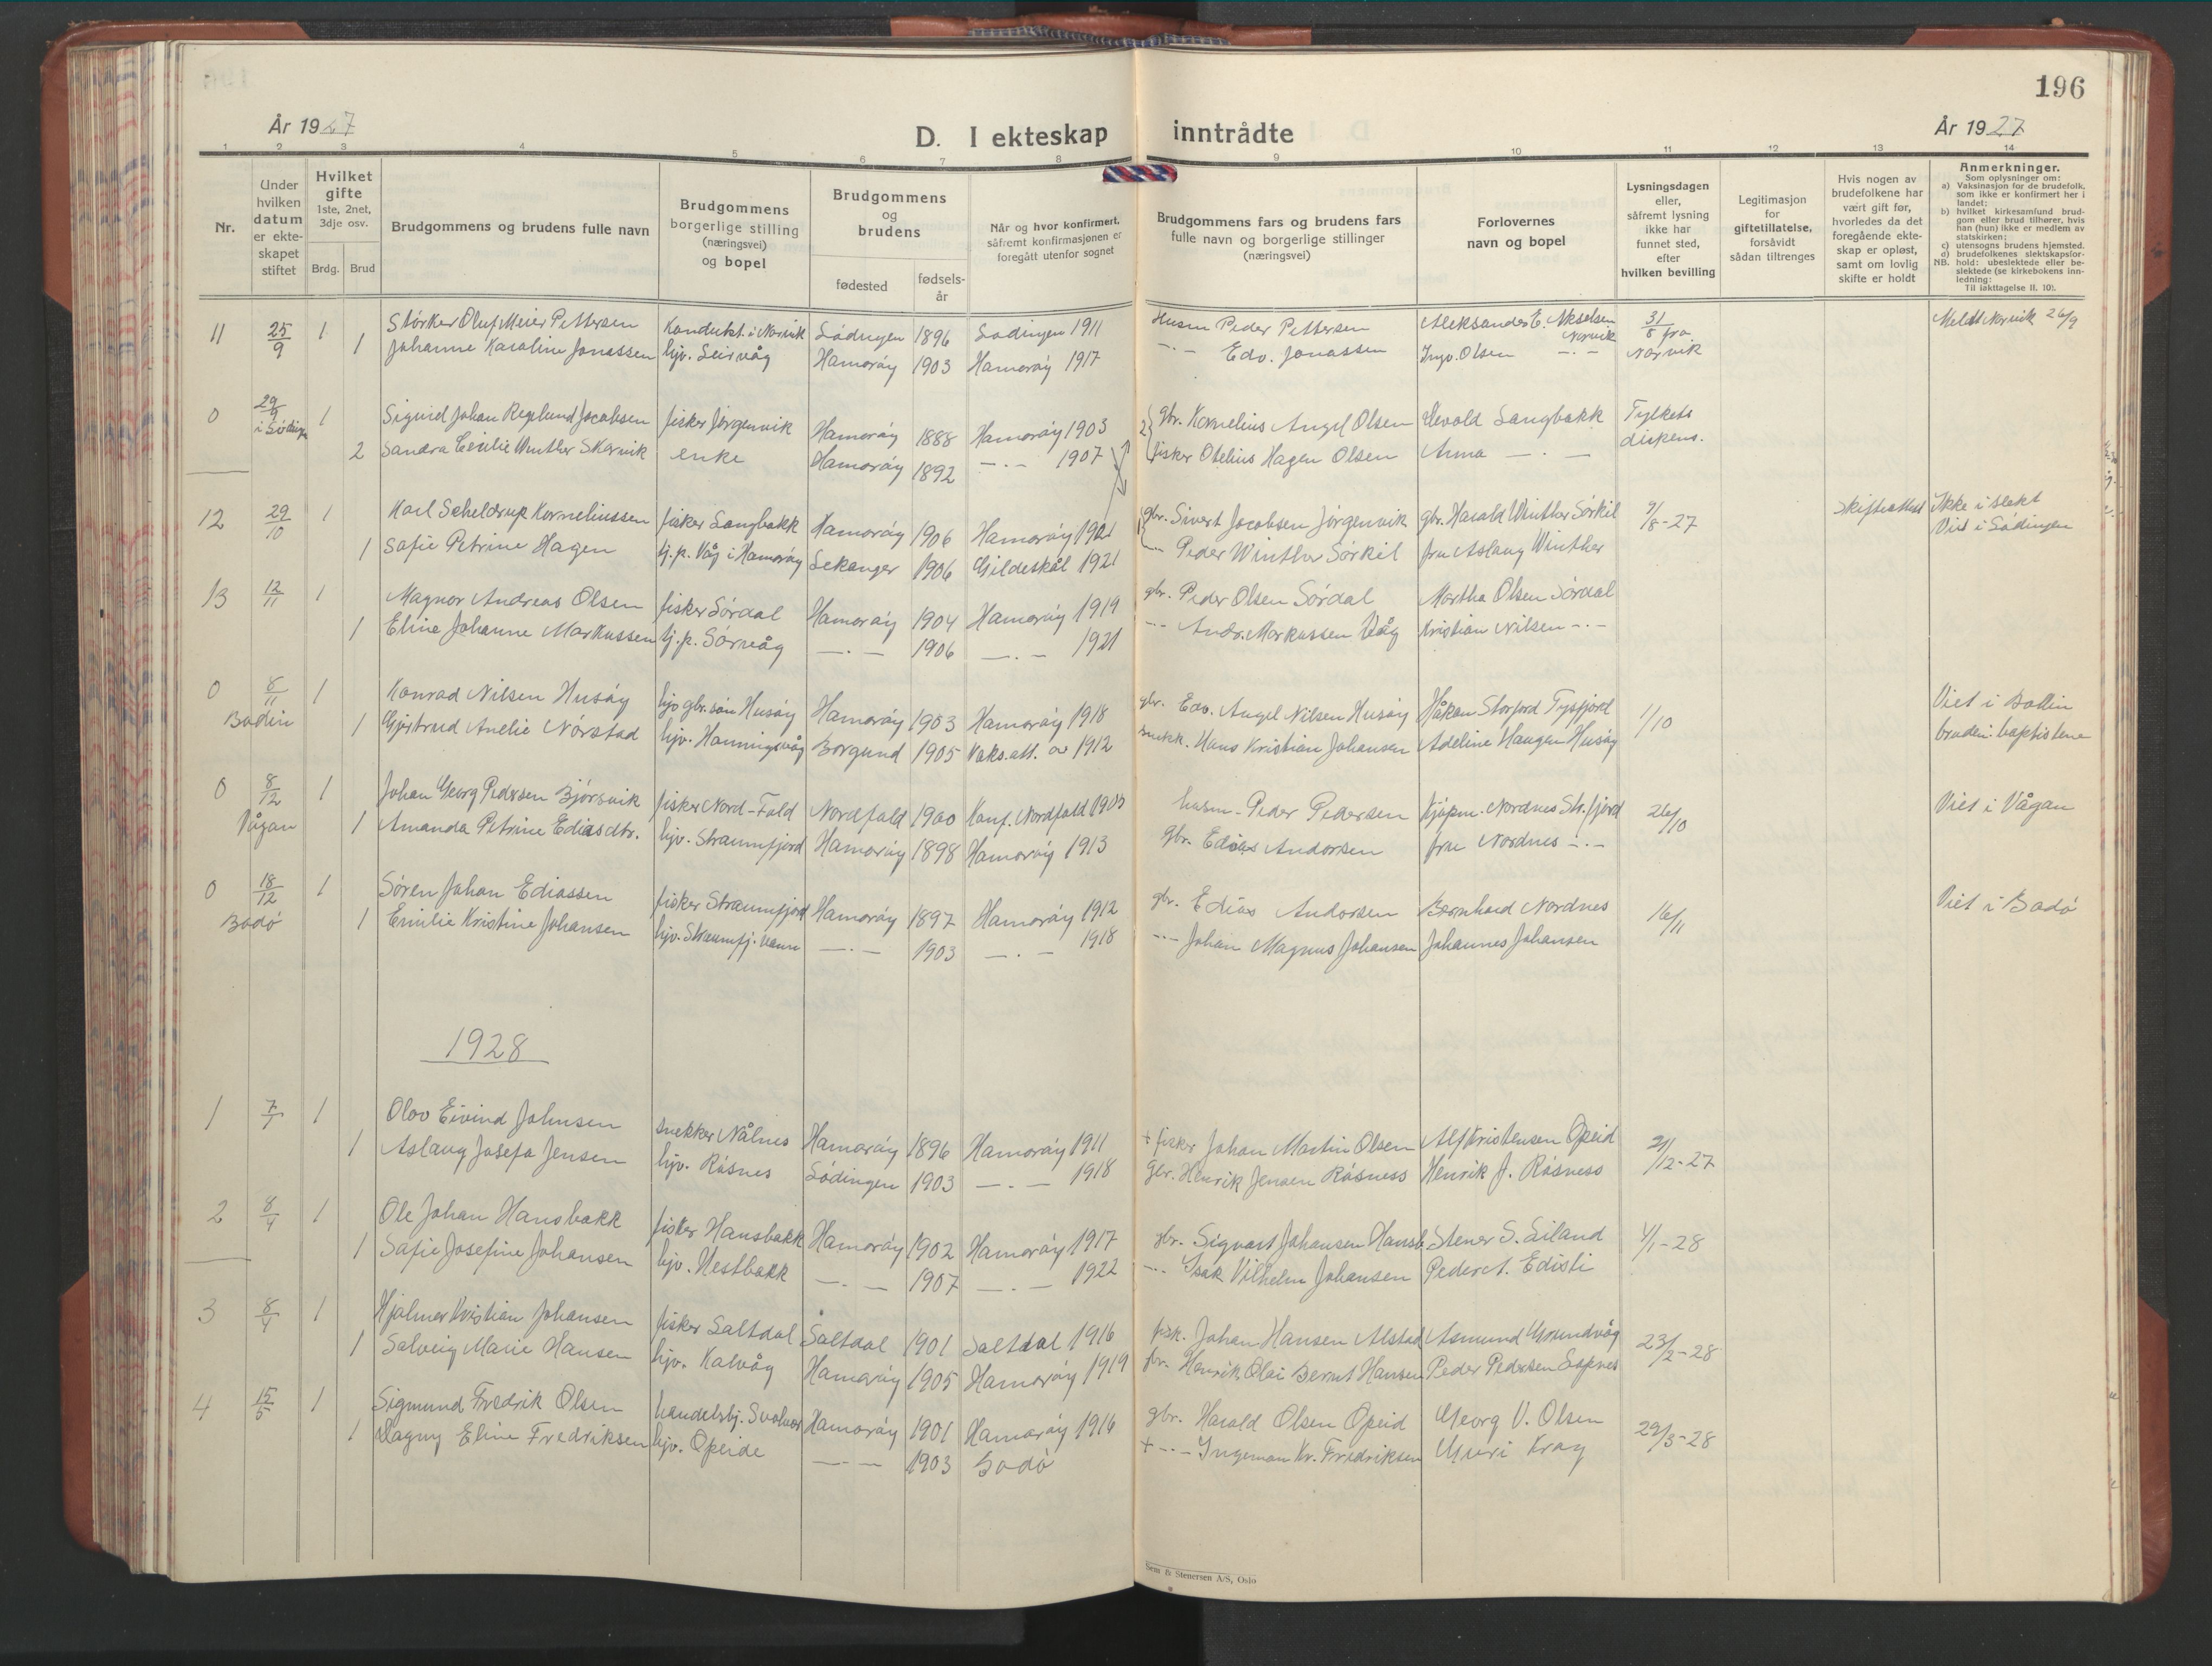 196
År 1927
D. I ekteskap inntrådte
År 1927
1 2 3 4 5 6 7 8 9 10 11 12 13 14
Nr.
Under hvilken datum er ekte-skapet stiftet
Hvilket gifte 1ste, 2net, 3dje osv.
Brdg. Brud
Brudgommens og brudens fulle navn
Brudgommens borgerlige stilling (næringsvei) og bopel
Brudgommens og brudens
fødested
fødsels-år
Når og hvor konfirmert, såfremt konfirmasjonen er foregått utenfor sognet
Brudgommens fars og brudens fars fulle navn og borgerlige stillinger (næringsvei)
Forlovernes navn og bopel
Lysningsdagen eller, såfremt lysning ikke har funnet sted, efter hvilken bevilling
Legitimasjon for giftetillatelse, forsåvidt sådan tiltrenges
Hvis nogen av brudefolkene har vært gift før, hvorledes da det foregående ekte-skap er opløst, samt om lovlig skifte er holdt
Anmerkninger.
Som oplysninger om:
a) Vaksinasjon for de brudefolk, som ikke er konfirmert her i landet;
b) hvilket kirkesamfund brud-gom eller brud tilhører, hvis han (hun) ikke er medlem av statskirken;
c) utensogns brudens hjemsted.
d) brudefolkenes slektskapsfor-hold: ubeslektede eller be-slektede (se kirkebokens inn-ledning:
NB. Til iakttagelse II. 10).
11 25/9 1 Størker Oluf Meier Pettersen Kondukt. i Narvik Lødingen 1896 Lødingen 1911 Husm Peder Pettersen Aleksander E. Akselsen Narvik 31/8 fra Narvik Meldt Narvik 26/9
1 Johanne Karoline Jonassen hjv. Leirvåg Hamarøy 1903 Hamarøy 1917 -·- Edv. Jonassen Ingv. Olsen -·-
0 29/9 i Lødingen 1 Sigvid Johan Regelund Jacobsen fisker Jørgenvik Hamarøy 1888 Hamarøy 1903 2 gbr. Kornelius Angel Olsen Sevald Langbakk Fylkets diskens.
2 Sandra Cecilie Winther Skarvik enke Hamarøy 1892 -·- 1907 fisker Otelius Hagen Olsen Anna -·-
12 29/10 1 Karl Scheldrup Korneliussen fisker Langbakk Hamarøy 1906 Hamarøy 1921 gbr. Sivert Jacobsen Jørgenvik gbr. Harald Winther Sørkil 9/8-27 Skifteattest Ikke i slekt
1 Safie Petrine Hagen tj.p. Våg i Hamarøy Lekanger 1906 Gildeskål 1921 -·- Peder Winther Sørkil fru Aslaug Winther Viet i Lødingen
13 12/11 1 Magnor Andreas Olsen fisker Sørdal Hamarøy 1904 Hamarøy 1919 gbr. Peder Olsen Sørdal Martha Olsen Sørdal
1 Eline Johanne Markussen tj.p. Sørvåg -·- 1906 -·- 1921 -·- Andr. Markussen Våg Kristian Nilsen -·-
0 8/11 1 Konrad Nilsen Husøy hjv gbr. søn Husøy Hamarøy 1903 Hamarøy 1918 gbr. Edv. Angel Nilsen Husøy Håkon Storjord Tysfjord 1/10 Viet i Bodin
Bodin 1 Gjertrud Anelie Nørstad hjv. Honningsvåg Borgund 1905 Vaks.att. av 1912 snekk. Hans Kristian Johansen Adeline Haugen Husøy bruden: baptistene
0 8/12 1 Johan Georg Pedersen Bjørsvik fisker Nord-Fold Nordfold 1900 Konf. Nordfold 1905 husm. Peder Pedersen Kjøpm. Nordnes Str.fjord 26/10 Viet i Vågan
Vågan 1 Amanda Petrine Ediasdtr. hjv. Straumfjord Hamarøy 1898 Hamarøy 1913 gbr. Edias Andorsen fru Nordnes -·-
0 18/12 1 Søren Johan Ediassen fisker Straumfjord Hamarøy 1897 Hamarøy 1912 gbr. Edias Andorsen Bernhard Nordnes 16/11 Viet i Bodø
Bodø 1 Emilie Kristine Johansen hjv. Straumfj. vann -·- 1903 -·- 1918 -·- Johan Magnus Johansen Johannes Johansen
1928
1 7/1 1 Olav Eivind Johnsen snekker Nålnes Hamarøy 1896 Hamarøy 1911 + fisker Johan Martin Olsen Alf Kristensen Opeid 21/12-27
1 Aslaug Josefa Jensen hjv. Råsnes Lødingen 1903 -·- 1918 gbr. Henrik Jensen Råsness Henrik J. Råsness
2 8/4 1 Ole Johan Hansbakk fisker Hansbakk Hamarøy 1902 Hamarøy 1917 gbr. Sigvart Johansen Hansb. Stener S. Eiland 4/1-28
1 Safie Josefine Johansen hjv. Nestbakk -·- 1907 -·- 1922 -·- Isak Vilhelm Johansen Peder A. Edisti
3 8/4 1 Hjalmer Kristian Johansen fisker Saltdal Saltdal 1901 Saltdal 1916 fisk. Johan Hansen Alstad Asmund Grundvåg 23/2-28
1 Solveig Marie Hansen hjv. Kalvåg Hamarøy 1905 Hamarøy 1919 gbr. Henrik Olai Bernt Hansen Peder Pedersen Espnes
4 15/5 1 Sigmund Fredrik Olsen handelsbj. Svolvær Hamarøy 1901 Hamarøy 1916 gbr. Harald Olsen Opeid Georg V. Olsen 29/3-28
1 Dagny Eline Fredriksen hjv. Opeide -·- 1903 Bodø + -·- Ingeman Kr. Fredriksen Guri Kray
Sem & Stenersen A/S, Oslo